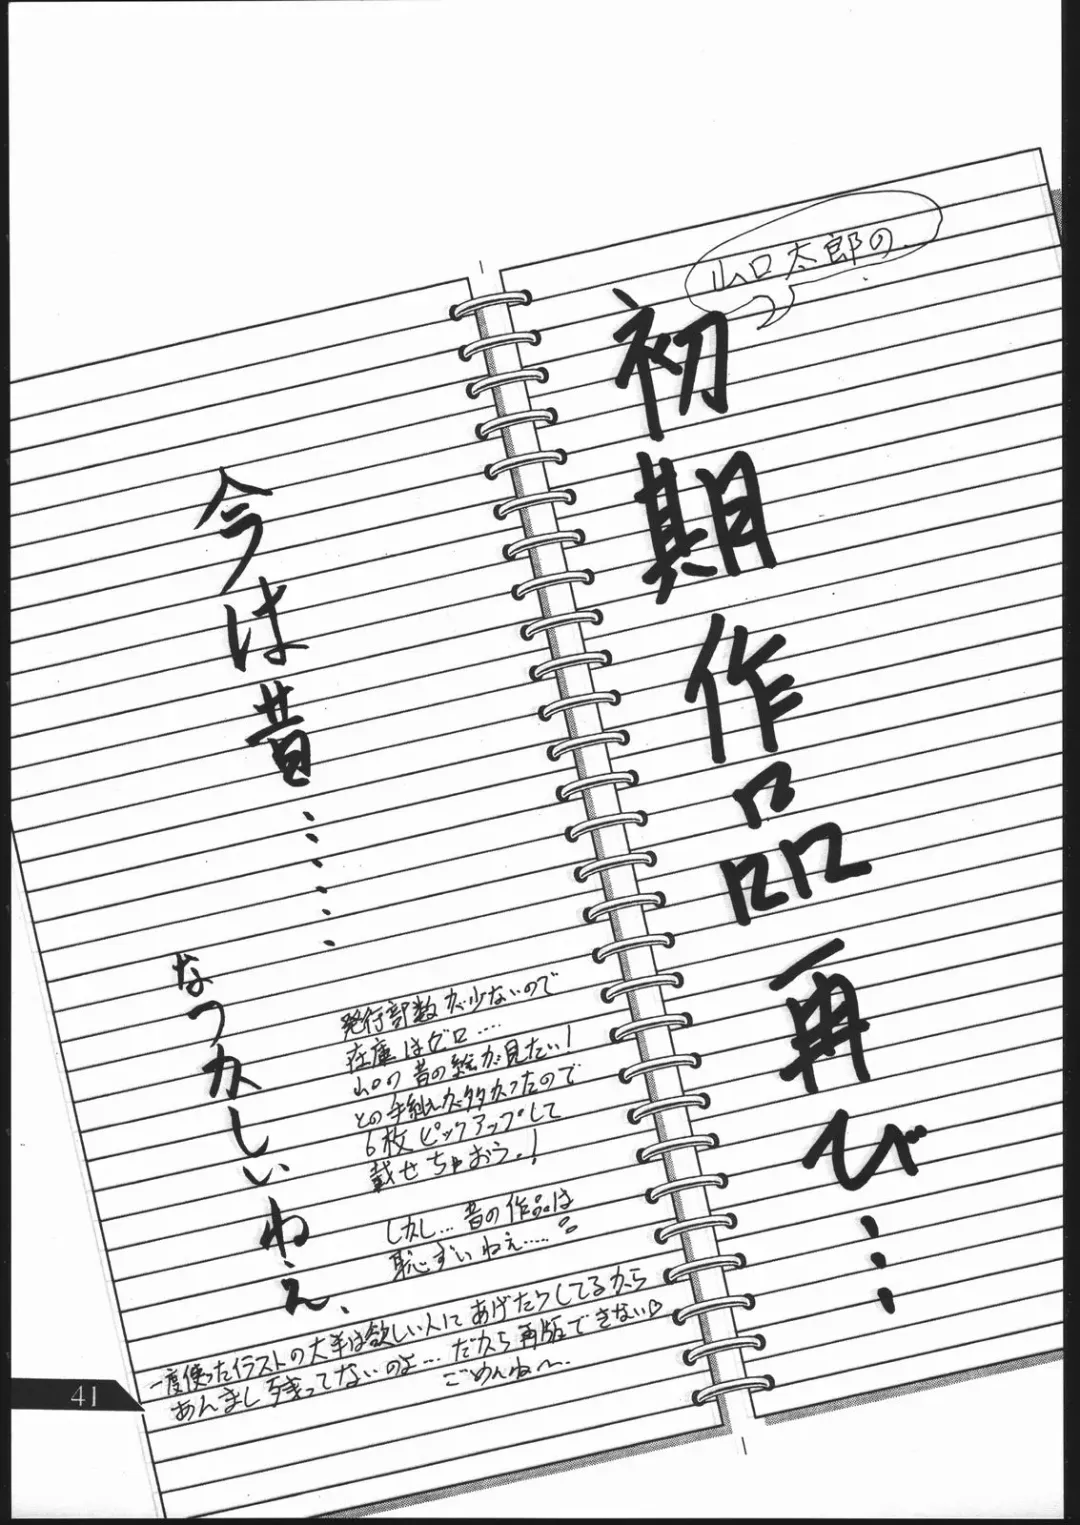 山口太郎の
初期作品再び…
今は昔……
なつかしいねぇ、
発行部数が少ないので
在庫はゼロ‥‥
山口の昔の絵が見たい!
との手紙が多かったので
6枚ピックアップして
載せちゃおう!
しかし…昔の作品は
恥ずいねぇ‥‥。
一度使ったイラストの大半は欲しい人にあげたりしてるから
あんまし残ってないのよ…だから再版できない♡
ごめんね〜
41